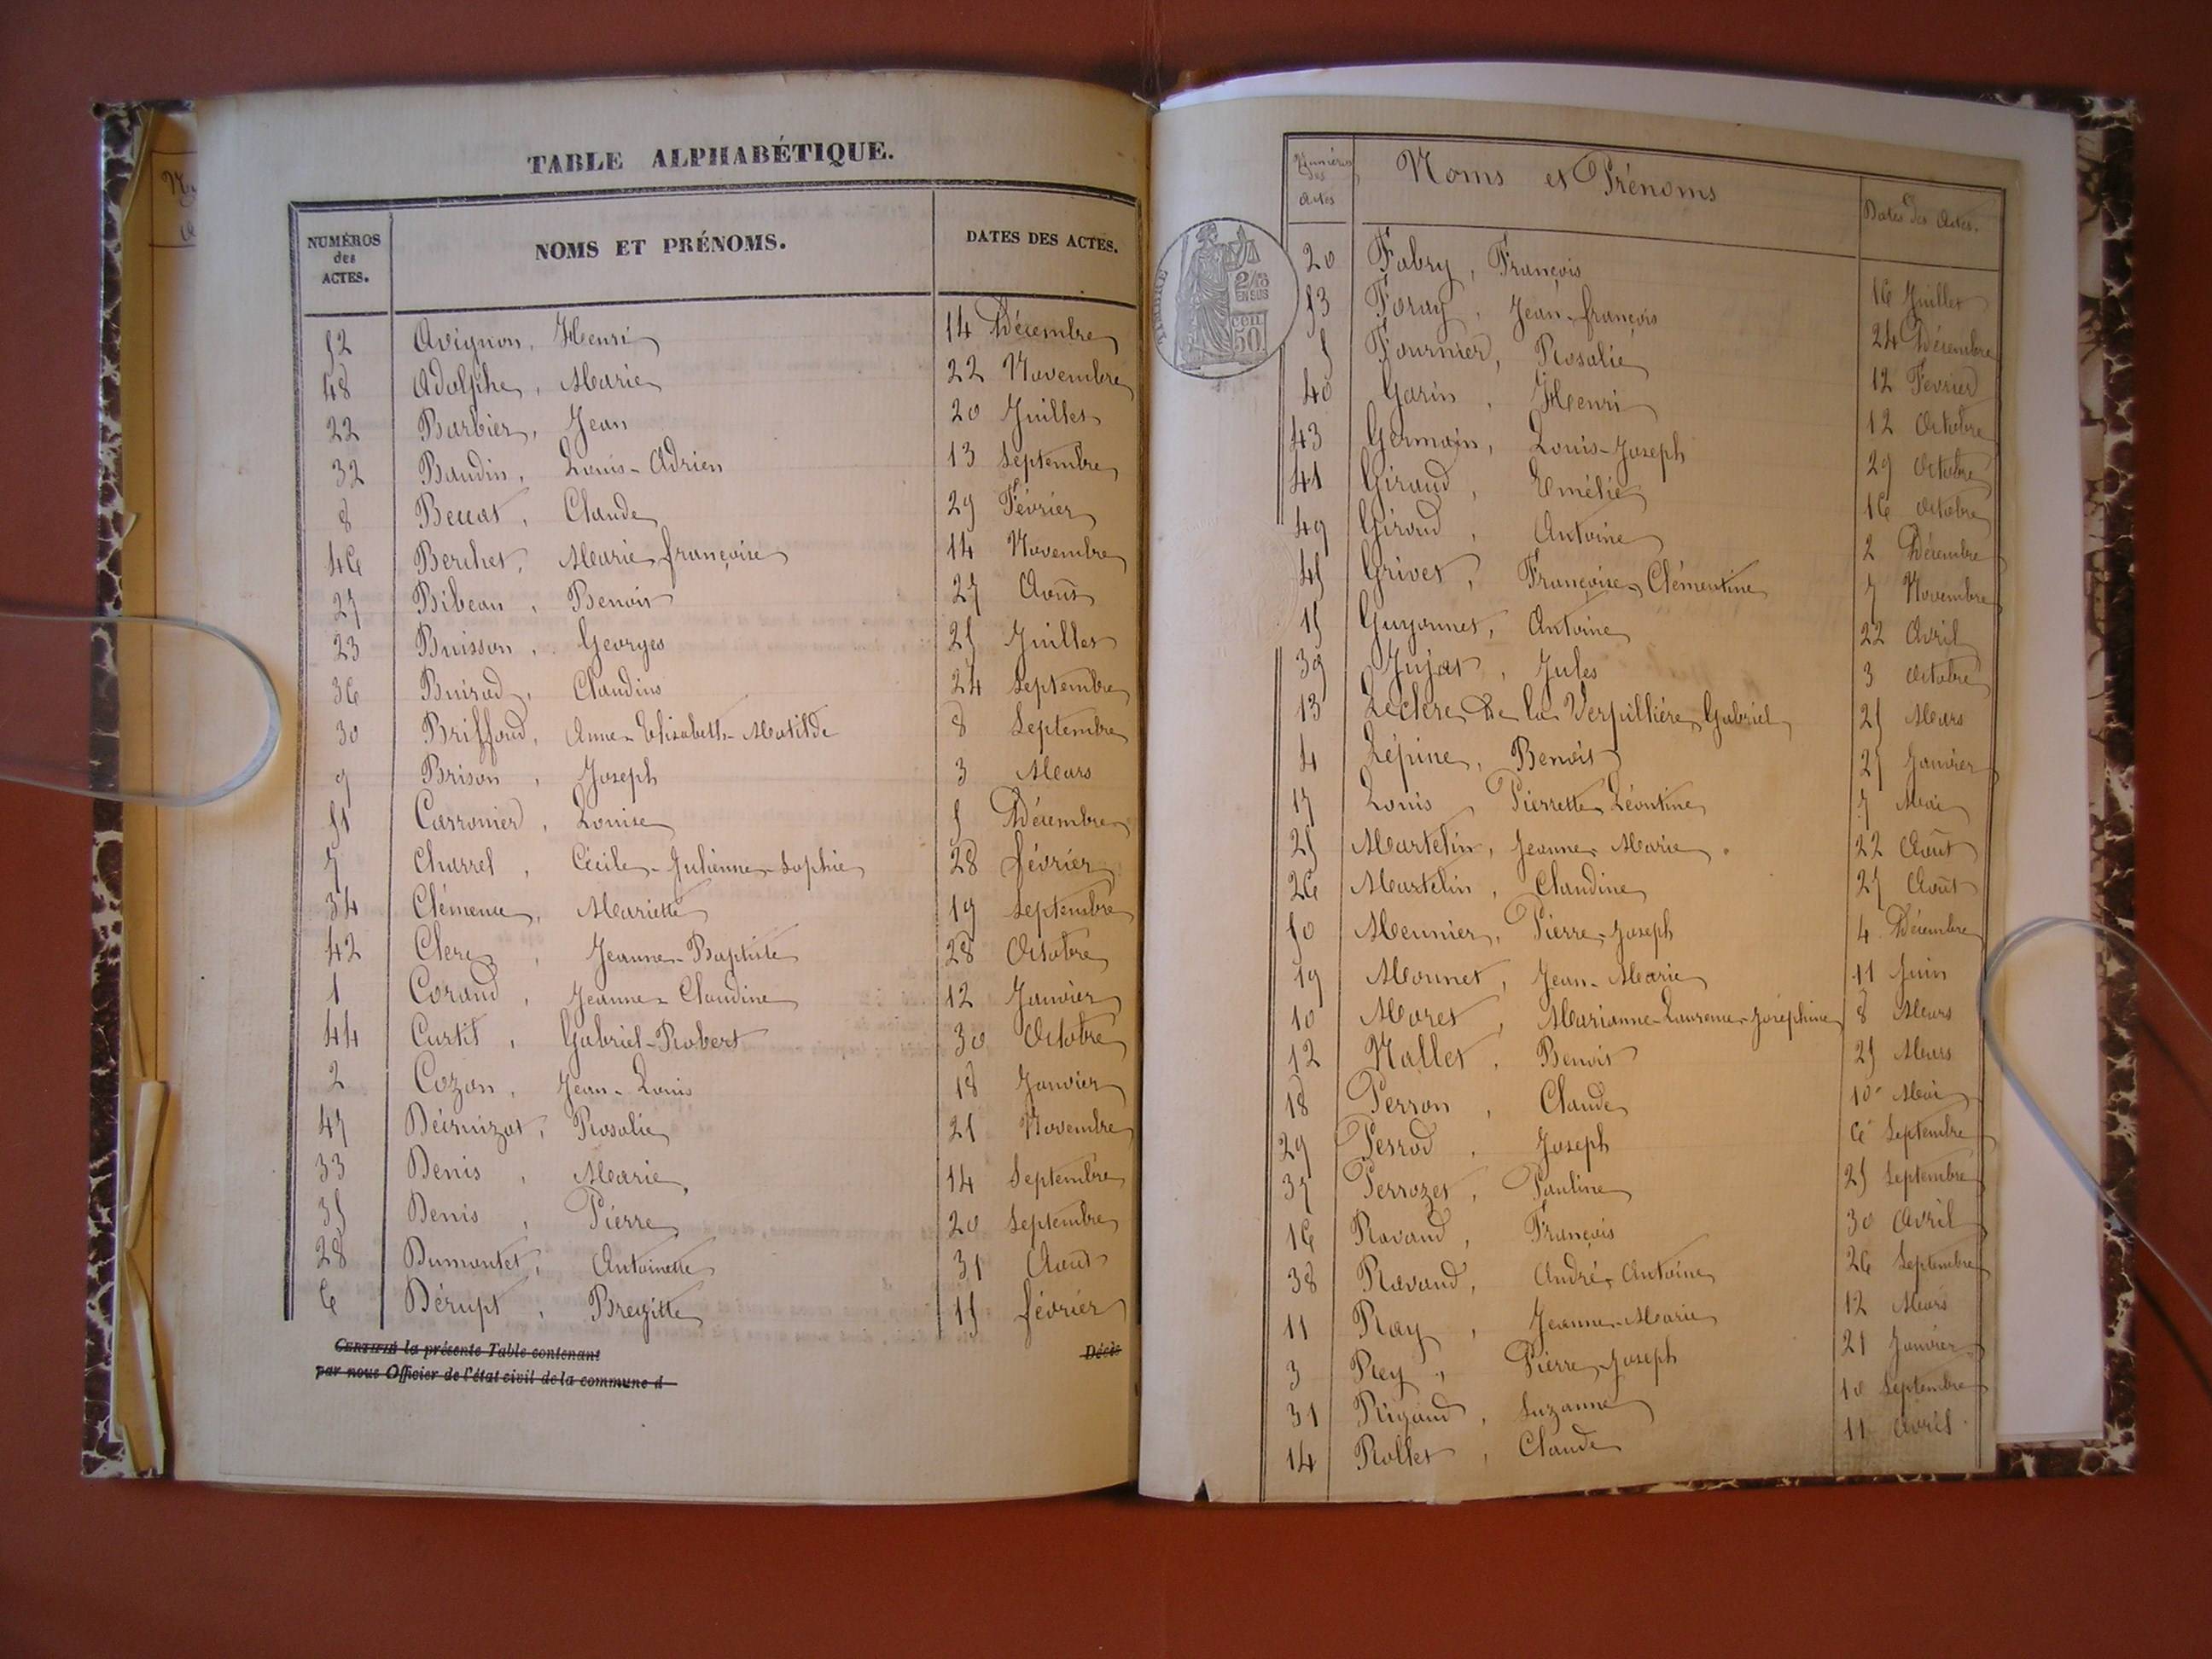 TABLE ALPHABÉTIQUE.
NUMÉROS des ACTES. NOMS ET PRÉNOMS. DATES DES ACTES.
52 Avignon, Henri 14 Décembre
48 Adolphe, Marie 22 Novembre
22 Barbier, Jean 20 Juillet
32 Baudin, Louis-Adrien 13 Septembre
8 Beccat, Claude 29 Février
46 Berchet, Marie françoise 14 Novembre
27 Bibean, Benoit 27 Août
23 Buisson, Georges 25 Juillet
36 Buirod, Claudius 24 Septembre
30 Briffoud, Anne-Elisabeth-Matilde 8 Septembre
9 Brison, Joseph 3 Mars
51 Carronier, Louise 5 Décembre
7 Charrel, Cécile-Julienne-Sophie 28 février
34 Clémence, Mariette 19 Septembre
42 Clerc, Jeanne-Baptiste 28 Octobre
1 Corand, Jeanne-Claudine 12 Janvier
44 Curtil, Gabriel-Robert 30 Octobre
2 Cozon, Jean-Louis 18 Janvier
47 Rosalie 21 Novembre
33 Denis, Marie, 14 Septembre
35 Denis, Pierre 20 Septembre
28 Dumontet, Antoinette 31 Août
6 Dérupt, Bregitte 15 février
CERTIFIÉ la présente Table contenant Décès
par nous Officier de l'état civil de la commune d
Numéros des Actes Noms et Prénoms Dates des Actes.
TIMBRE 2/10 EN SUS 50 cen
20 Fabry, François 16 Juillet
53 Foray, Jean-françois 24 Décembre
5 Fournier, Rosalie 12 Février
40 Garin, Henri 12 Octobre
43 Germain, Louis-Joseph 29 Octobre
41 Giraud, Emélie 16 Octobre
49 Giroud, Antoine 2 Décembre
45 Grivet, Françoise Clémentine 7 Novembre
15 Guyonnet, Antoine 22 Avril
39 Jujat, Jules 3 Octobre
13 Leclerc De la Verpillière, Gabriel 25 Mars
4 Lépine, Benoit 27 Janvier
17 Louis, Pierrette Léontine 7 Mai
25 Martelin, Jeanne Marie. 22 Août
26 Martelin, Claudine 27 Août
50 Meunier, Pierre-Joseph 4 Décembre
19 Monnet, Jean-Marie 11 Juin
10 Moret, Marianne-Laurence-Joséphine 8 Mars
12 Nallet, Benoit 25 Mars
18 Perron, Claude 10 Mai
29 Perrod, Joseph 6 Septembre
37 Perrozet, Pauline 25 Septembre
16 Ravaud, François 30 Avril
38 Ravaud, André-Antoine 26 Septembre
11 Ray, Jeanne-Marie 12 Mars
3 Rey, Pierre-Joseph 21 Janvier
31 Rigaud, Suzanne 10 Septembre
14 Rollet, Claude 11 Avril